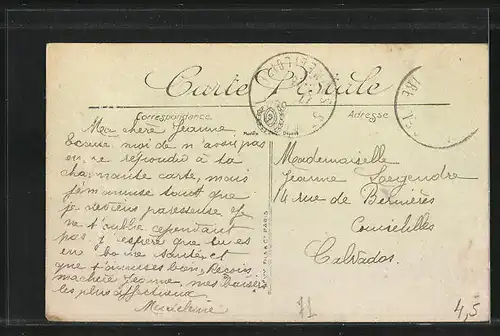 Carte Postale
Correspondance
Adresse
Ma chère Jeanne
Excuse moi de n'avoir pas
répondu à ta
charmante carte, mais
je m'amuse tant que
je deviens paresseuse je
ne t'oublie cependant
pas, j'espère que tu es
en bonne santé et
que t'amuses bien. Reçois
ma chère Jeanne, mes baisers
les plus affectueux.
Madeleine
Mademoiselle
Jeanne Legendre
14 rue de Bernières
Courseulles
Calvados.
71
4,5